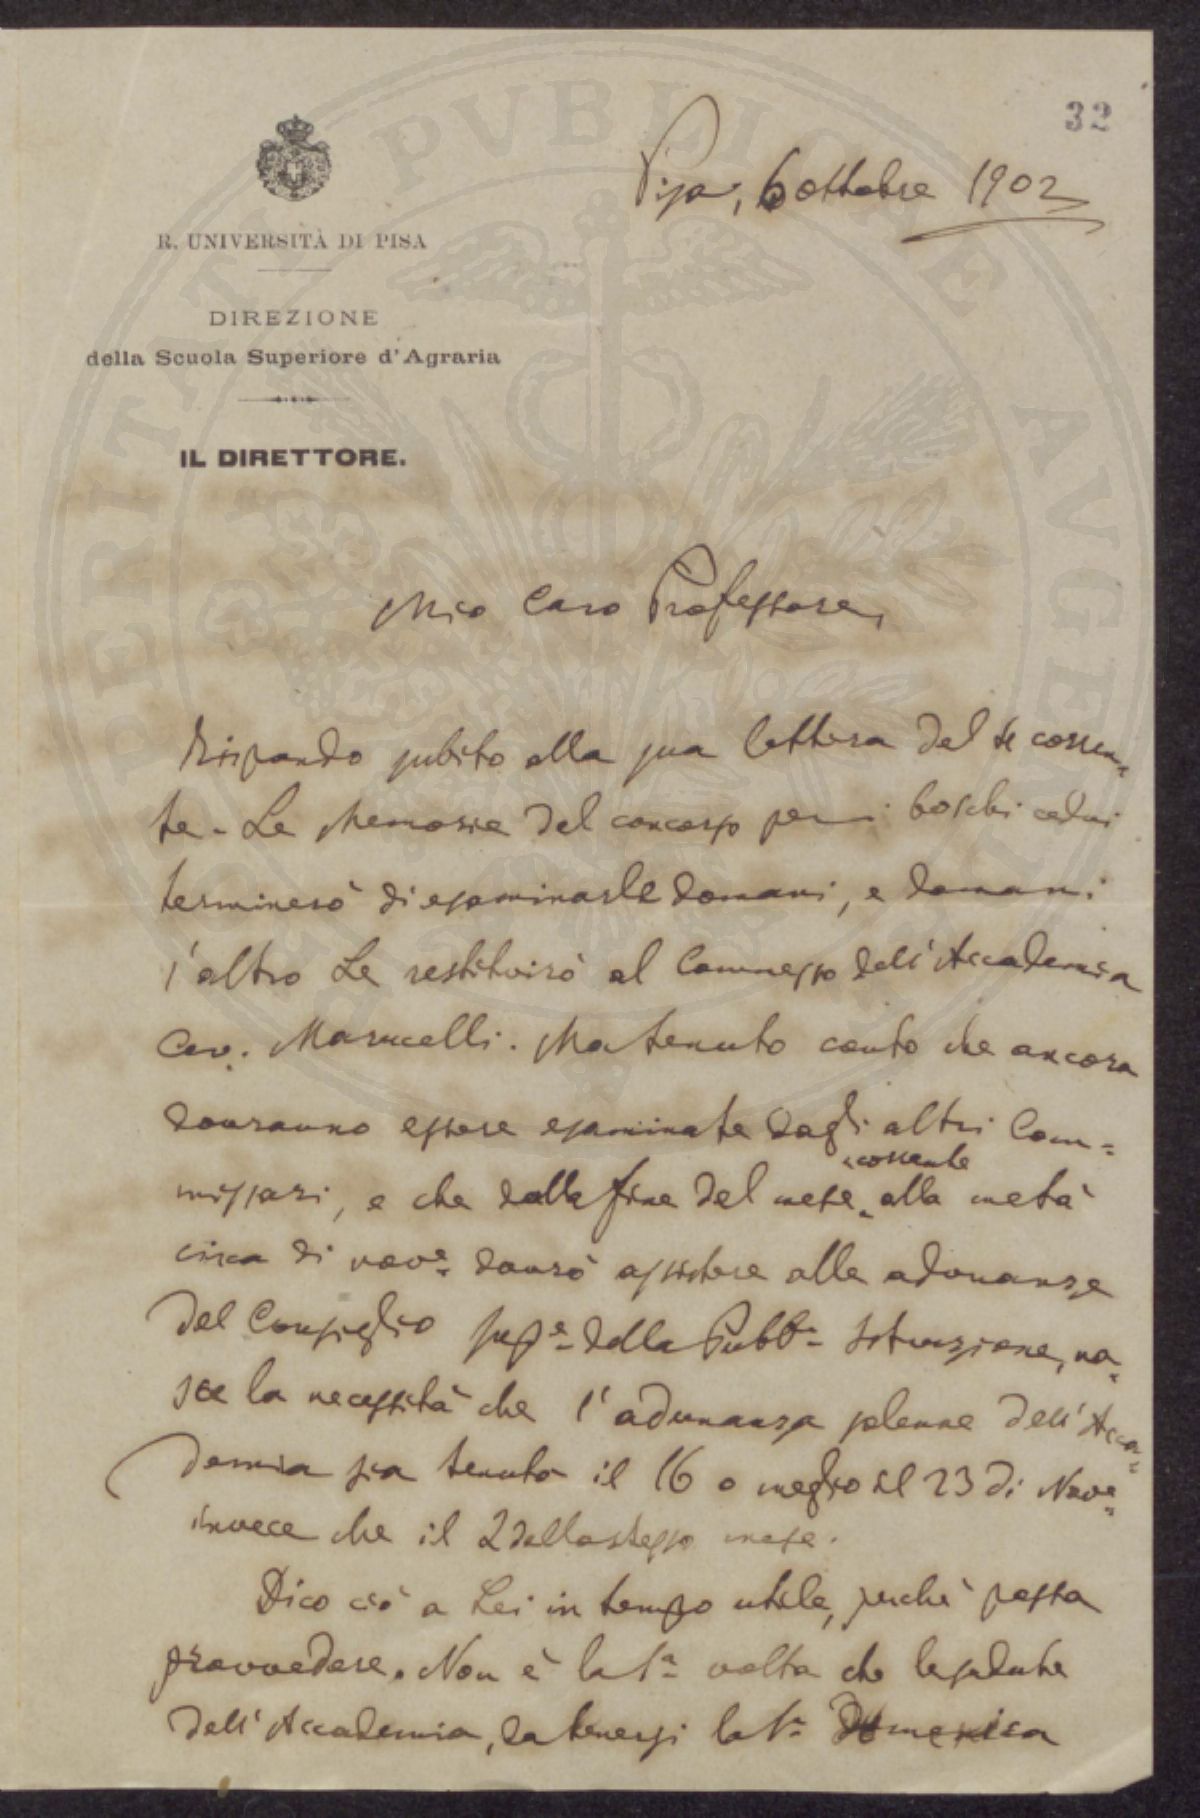 32
Pisa, 6 ottobre 1902
R. UNIVERSITÀ DI PISA
DIREZIONE
della Scuola Superiore d'Agraria
IL DIRETTORE.
Mio Caro Professore,
Rispondo subito alla sua lettera del corren-
te. Le Memorie del concorso per i boschi cedui
terminerò di esaminarle domani, e domani
l'altro Le restituirò al Commesso dell'Accademia
Cav. Marucelli. Ma tenuto conto che ancora
dovranno essere esaminate dagli altri Com-
missari, e che dalla fine del mese corrente alla metà
circa di nove. dovrò assistere alle adunanze
del Consiglio supe. della Pubba. Istruzione, na-
sce la necessità che l'adunanza solenne dell'Acca-
demia sia tenuta il 16 o meglio il 23 di Nove.
invece che il 2 dello stesso mese.
Dico ciò a Lei in tempo utile, perchè possa
provvedere. Non è la 1a. volta che le sedute
dell'Accademia, da tenersi la 1a. Domenica
PVBLICAE AVGENDAE PROSPERITATI